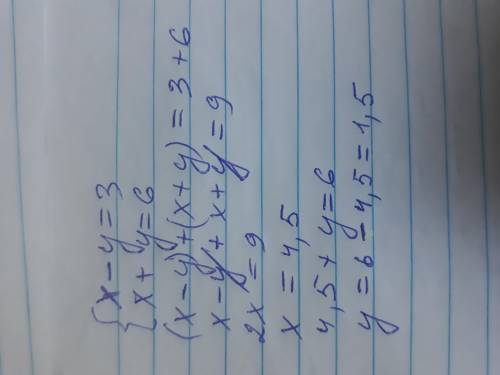 { x - y = 3
x + y = 6
(x - y) + (x + y) = 3 + 6
x - y + x + y = 9
2x = 9
x = 4,5
4,5 + y = 6
y = 6 = 4,5 = 1,5